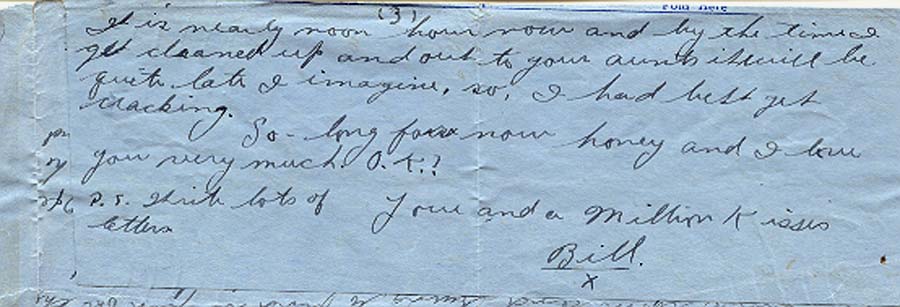 (3)
Fold Here
It is nearly noon hour now and by the time I
get cleaned up and out to your aunts it will be
quite late I imagine, so, I had best get
cracking.
So-long for now honey and I love
you very much. O.K.?
P.S. Write lots of
letters
Love and a Million Kisses
Bill.
X